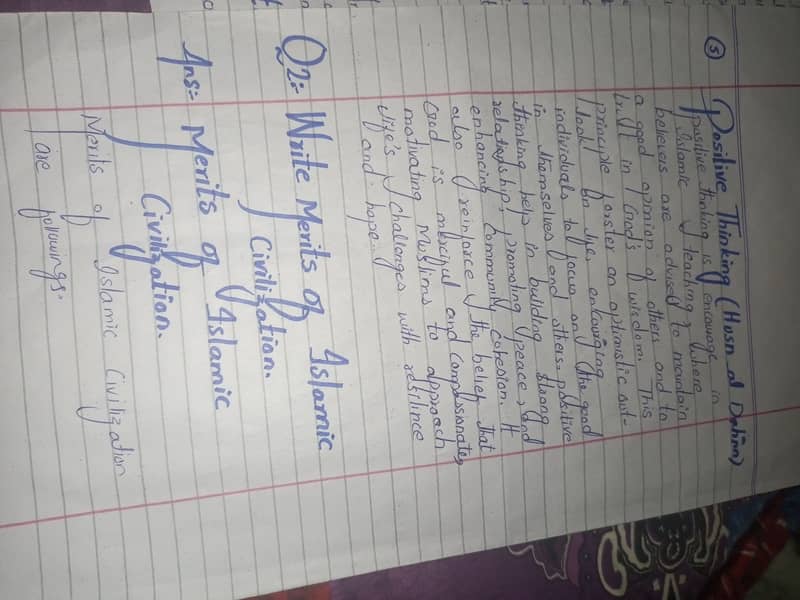 (5) Positive Thinking (Husn al Dahnn)
positive thinking is encourage in
Islamic teaching, where
believers are advised to maintain
a good opinion of others and to
trust in God's wisdom. This
principle forster an optimistic out-
look on life, encouraging
individuals to focus on the good
in themselves and others. positive
thinking helps in building strong
relationship, promoting peace, and
enhancing community cohesion. It
also reinforce the belief that
God is merciful and Compassionate,
motivating Muslims to approach
life's challenges with resilince
and hope.
Q2:- Write Merits of Islamic
Civilization.
Ans:- Merits of Islamic
Civilization.
Merits of Islamic Civilization
are followings.